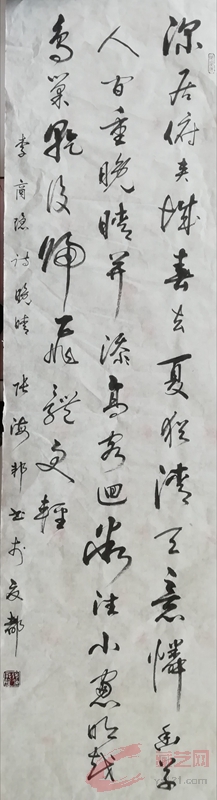 深居俯夹城春去夏犹清天意憐幽草
人间重晚晴并添高阁迴微注小窗明越
鸟巢乾後归飛體更輕
李商隐诗晚晴 张海邦书于都
艺网